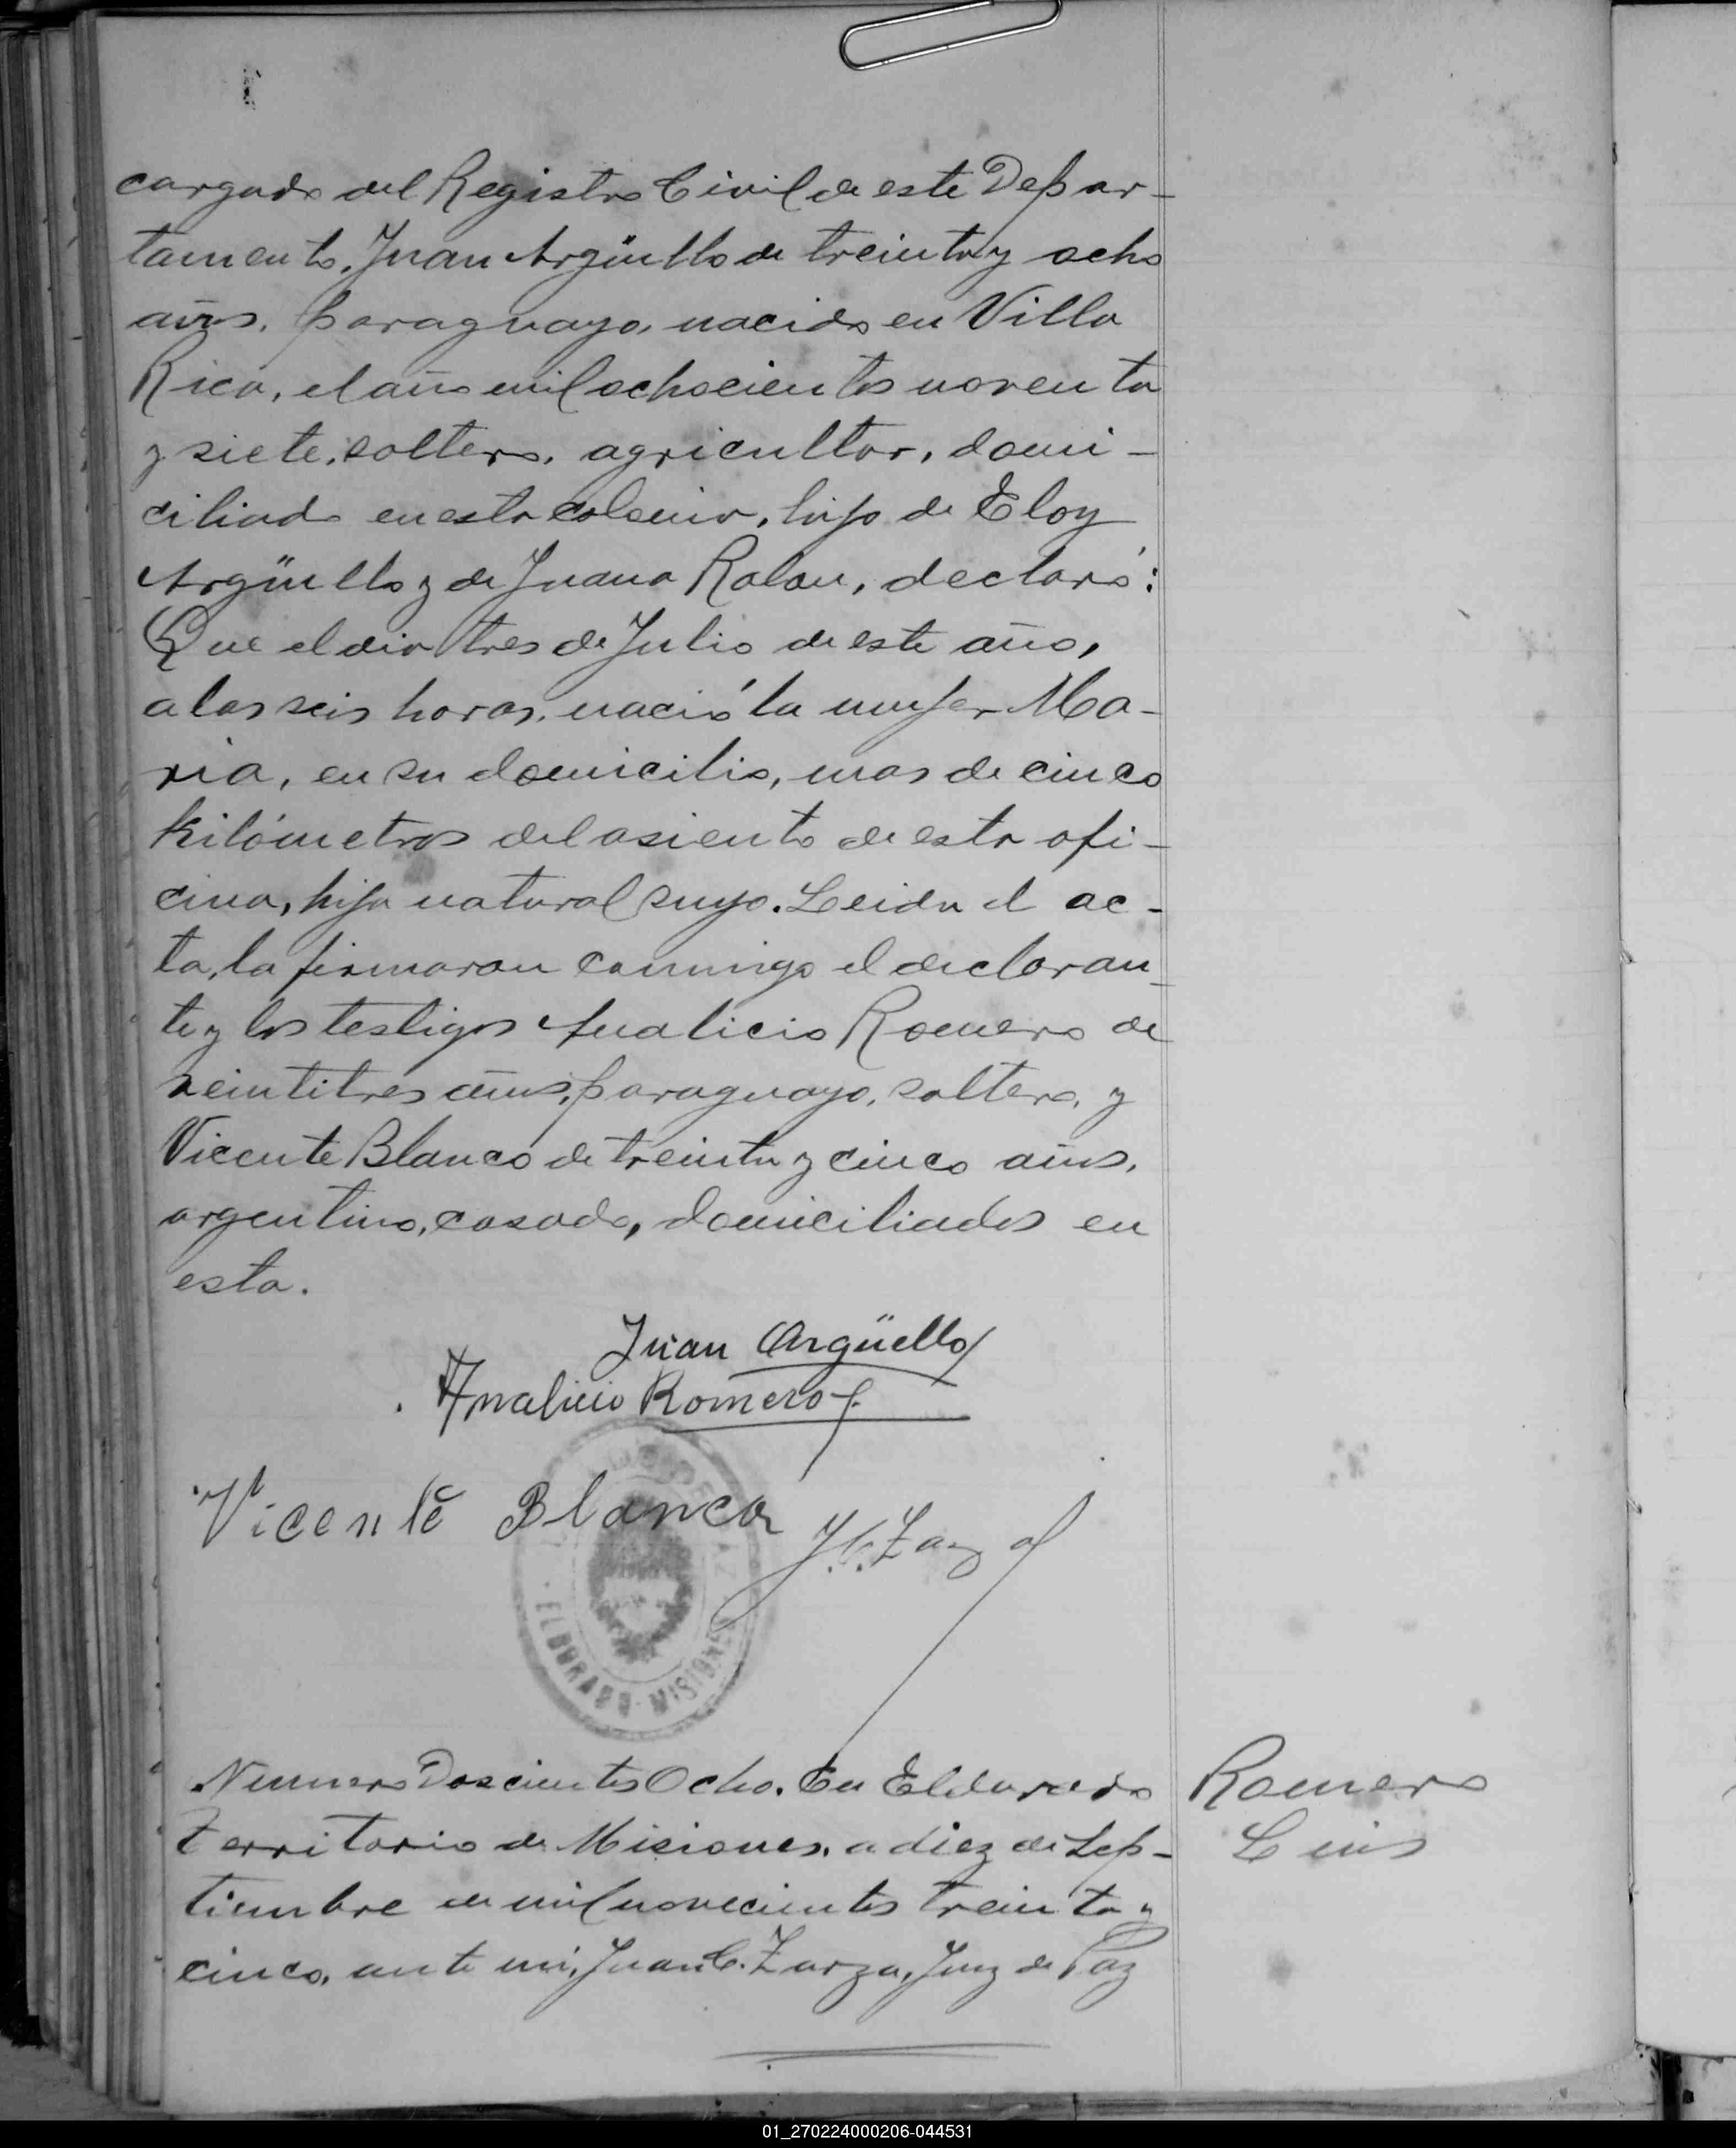 cargado del Registro Civil de este Depar-
tamento, Juan Argüello de treinta y ocho
años, paraguayo, nacido en Villa
Rica, el año mil ochocientos noventa
y siete, soltero, agricultor, domi-
ciliado en esta colonia, hijo de Eloy
Argüello y de Juana Rolon, declaró:
Que el dia tres de Julio de este año,
a las seis horas, nació la mujer Ma-
ria, en su domicilio, mas de cinco
kilómetros del asiento de esta ofi-
cina, hija natural suya. Leida el ac-
ta, la firmaron conmigo el declaran-
te y los testigos Analicio Romero de
veintitres años, paraguayo, soltero, y
Vicente Blanco de treinta y cinco años,
argentino, casado, domiciliados en
esta.
Juan Argüello
Analicio Romero
Vicente Blanco
ELDORADO - MISIONES
Numero Doscientos Ocho. En Eldorado
Territorio de Misiones, a diez de Sep-
tiembre de mil novecientos treinta y
cinco, ante mi, Juan C. Zarza, Juez de Paz
Romero
Luis
01_270224000206-044531